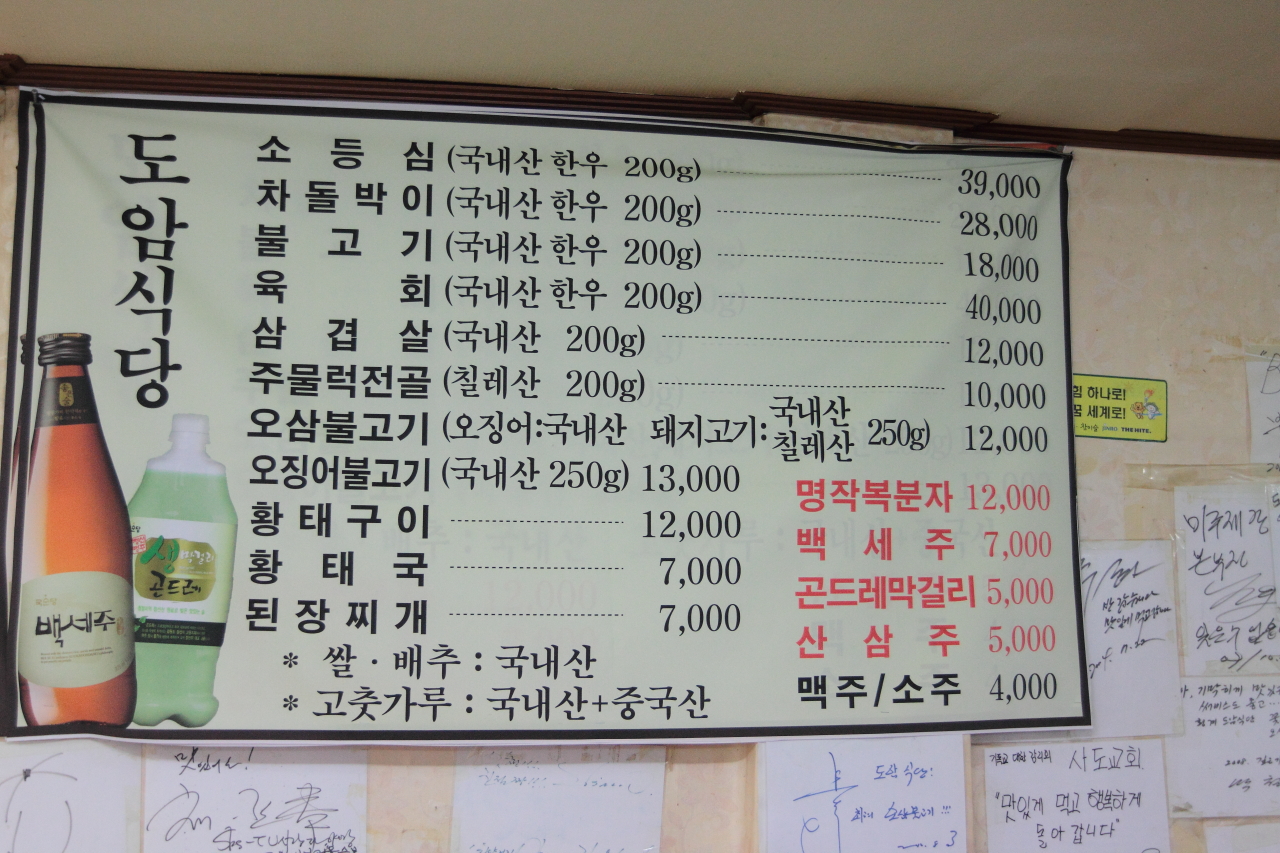 도암식당
소등심 (국내산 한우 200g) 39,000
차돌박이 (국내산 한우 200g) 28,000
불고기 (국내산 한우 200g) 18,000
육회 (국내산 한우 200g) 40,000
삼겹살 (국내산 200g) 12,000
주물럭전골 (칠레산 200g) 10,000
오삼불고기 (오징어:국내산 돼지고기:국내산 칠레산 250g) 12,000
오징어불고기 (국내산 250g) 13,000
황태구이 12,000
황태국 7,000
된장찌개 7,000
* 쌀·배추 : 국내산
* 고춧가루 : 국내산+중국산
명작복분자 12,000
백세주 7,000
곤드레막걸리 5,000
산삼주 5,000
맥주/소주 4,000
백세주
생막걸리
곤드레
힘 하나로!
꿈 세계로!
맛있게 먹고
맛있어요!
도암식당:
사도교회
"맛있게 먹고 행복하게
돌아갑니다"